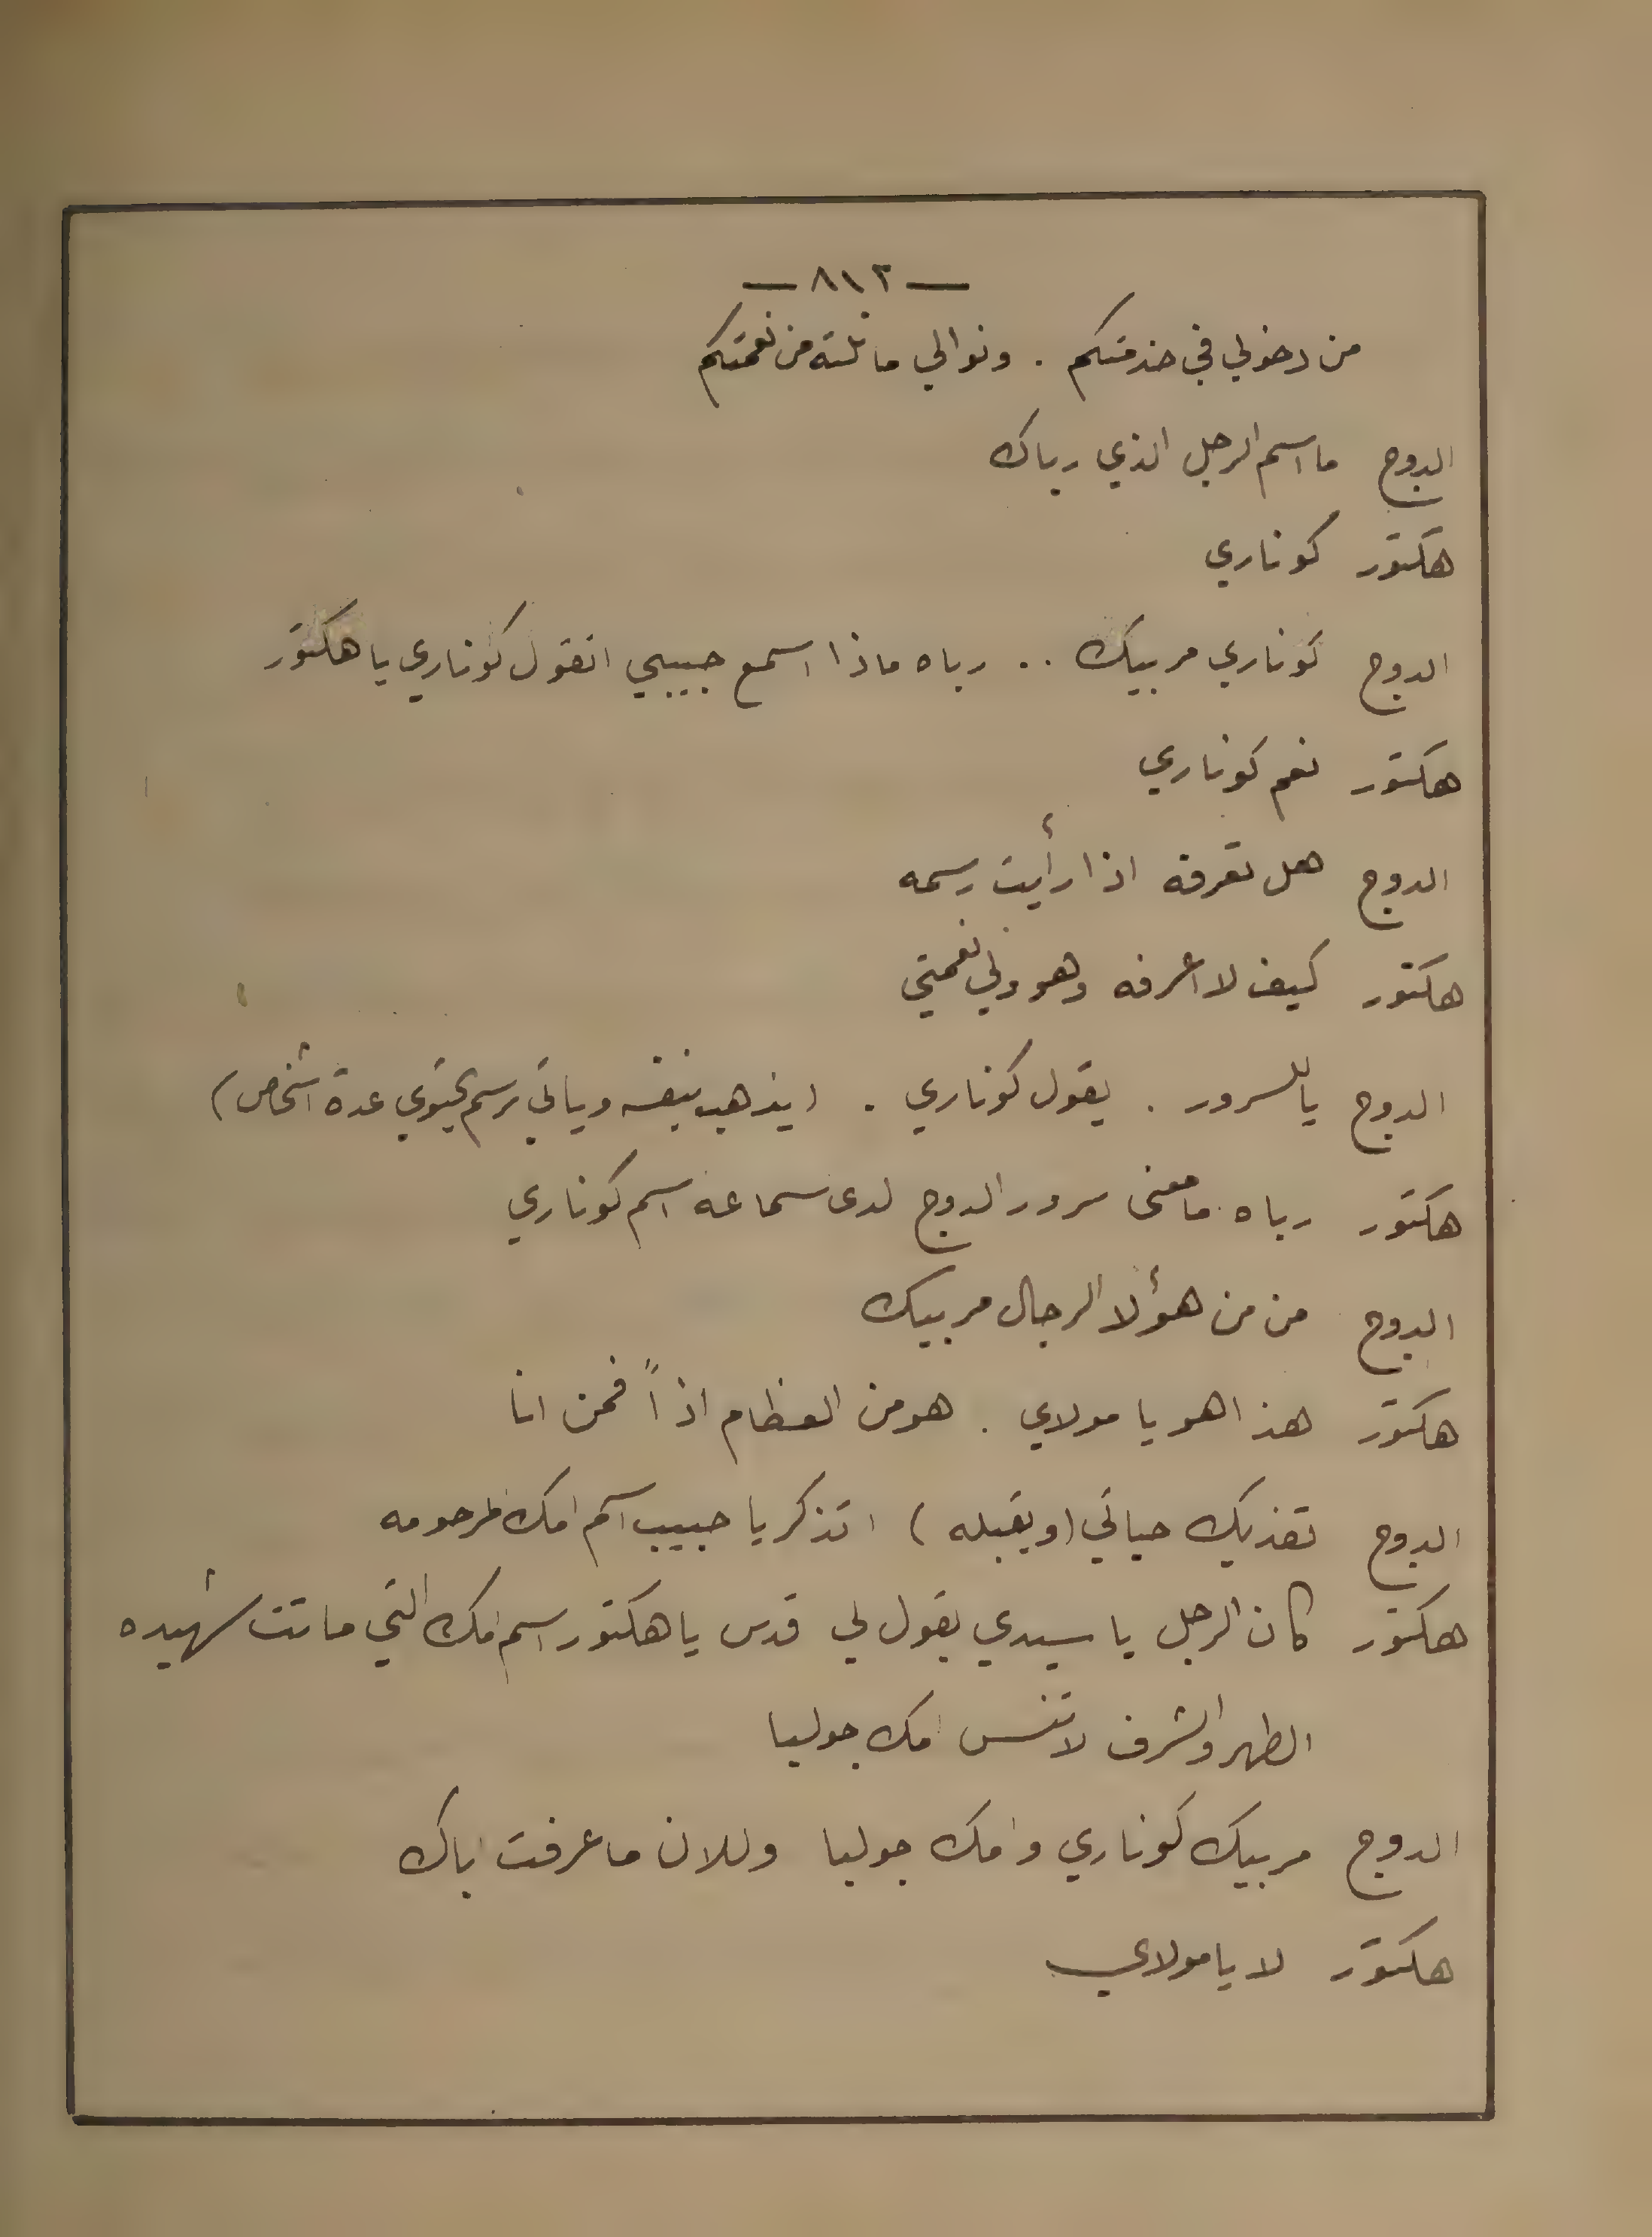 — ٨١٣ —
من دخولي في خدمتكم . ونوالي ما نلته من نعمتكم
الدوج ما اسم الرجل الذي رباك
هكتور كوناري
الدوج كوناري مربيك .. رباه ماذا اسمع حبيبي اتقول كوناري يا هكتور
هكتور نعم كوناري
الدوج هل تعرفه اذا رأيت رسمه
هكتور كيف لا اعرفه وهو ولي نعمتي
الدوج ياللسرور . يقول كوناري . (يذهب بنفسه وياتي برسم يحتوي عدة اشخاص)
هكتور رباه ما معنى سرور الدوج لدى سماعه اسم كوناري
الدوج من من هؤلا الرجال مربيك
هكتور هذا هو يا مولاي . هو من العظام اذاً فمن انا
الدوج تفديك حياتي (ويقبله) اتذكر يا حبيب اسم امك المرحومه
هكتور كان الرجل يا سيدي يقول لي قدس يا هكتور اسم امك التي ماتت شهيده
الطهر والشرف لا تنس امك جوليا
الدوج مربيك كوناري وامك جوليا وللان ما عرفت اباك
هكتور لا يا مولاي